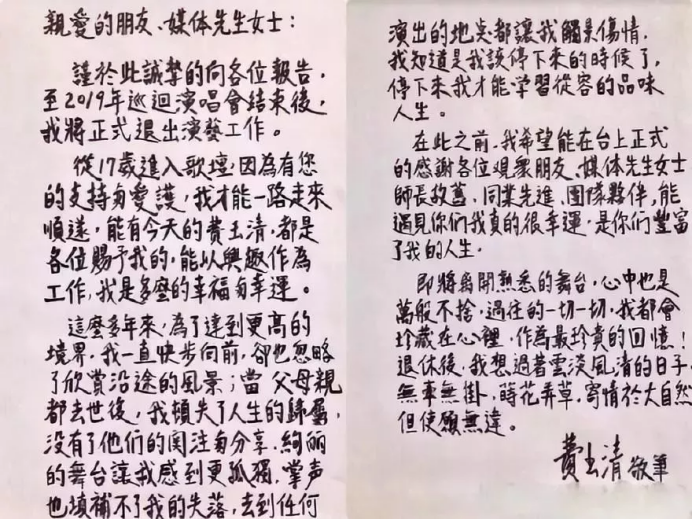 親愛的朋友、媒体先生女士：
謹於此誠摯的向各位報告，
至2019年巡迴演唱會結束後，
我將正式退出演藝工作。
從17歲進入歌壇，因為有您
的支持與愛護，我才能一路走來
順遂，能有今天的費玉清，都是
各位賜予我的，能以興趣作為
工作，我是多麼的幸福與幸運。
這麼多年來，為了達到更高的
境界，我一直快步向前，卻也忽略
了欣賞沿途的風景；當父母親
都去世後，我頓失了人生的歸屬，
沒有了他們的関注與分享，絢麗
的舞台讓我感到更孤獨，掌声
也填補不了我的失落，去到任何
演出的地点都讓我觸景傷情，
我知道是我該停下來的時候了，
停下來我才能学習從容的品味
人生。
在此之前，我希望能在台上正式
的感謝各位観衆朋友、媒体先生女士
師長故舊、同業先進、團隊夥伴，能
遇見你们我真的很幸運，是你们豐富
了我的人生。
即將離開熟悉的舞台，心中也是
萬般不捨，過往的一切一切，我都會
珍藏在心裡，作為最珍貴的回憶！
退休後，我想過著雲淡風清的日子，
無牽無掛，蒔花弄草，寄情於大自然
但使願無違。
費玉清 敬筆